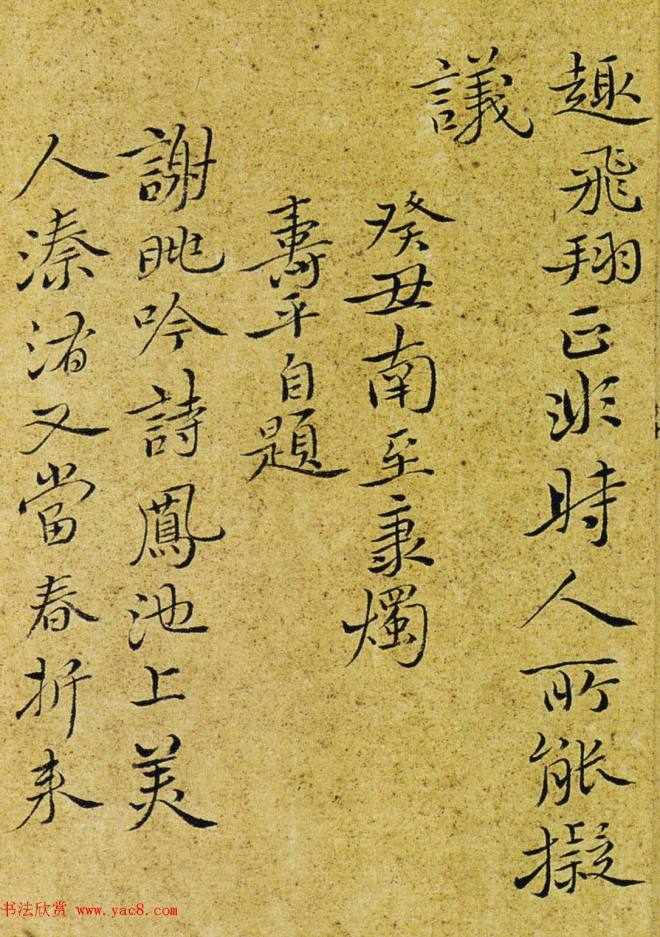 趣飛翔正非時人所能擬
議
癸丑南至秉燭
壽平自題
謝眺吟詩鳳池上美
人溱洧又當春折来
书法欣赏 www.yac8.com